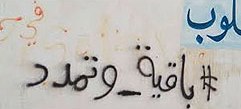 لوب
في
#باقية_وتمدد